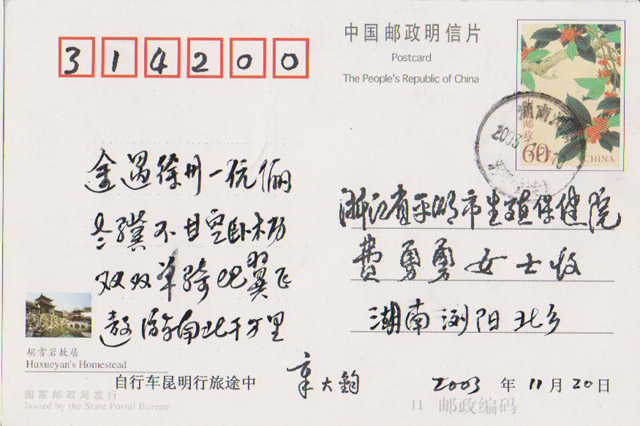 314200
中国邮政明信片
Postcard
The People's Republic of China
中国邮政
60分
CHINA
湖南
2003.
金遇徐州一伉俪
冬骥不甘空卧枥
双双单骑比翼飞
遨游南北千万里
浙江省平湖市生殖保健院
费勇勇女士收
湖南浏阳北乡
胡雪岩故居
Huxueyan's Homestead
自行车昆明行旅途中
章大钧
2003 年 11 月 20 日
国家邮政局发行
Issued by the State Postal Bureau
11 邮政编码